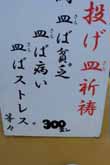 投げ皿祈祷
皿ば貧乏
皿ば病い
皿ばストレス
等々
300